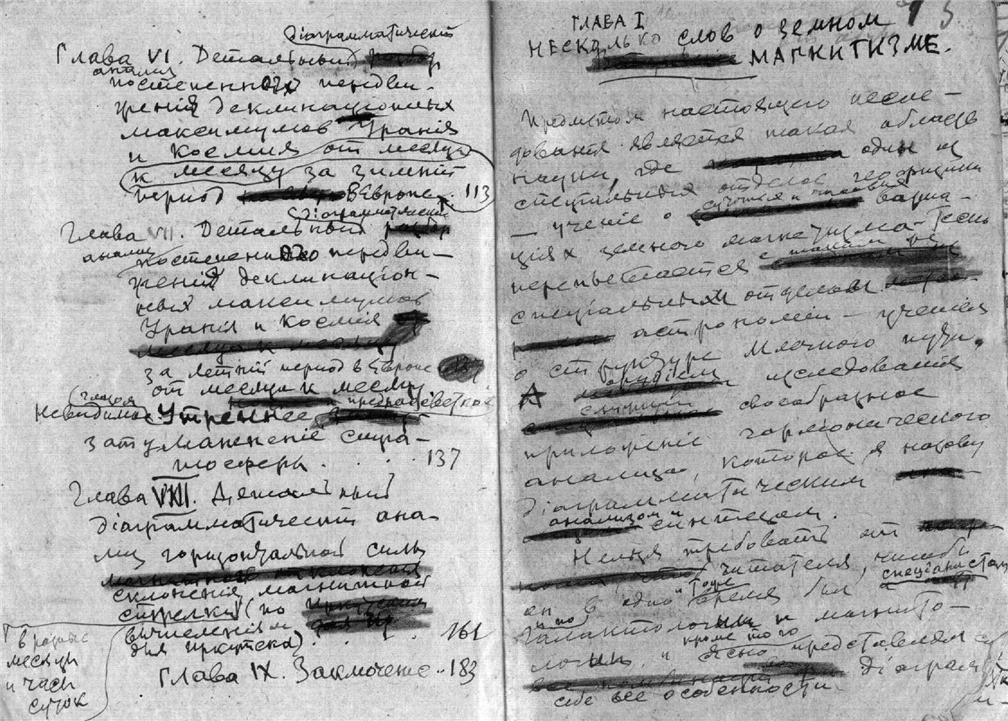 Діаграмматическій
Глава VI. Детальный
анализ
постепенныхъ передви-
женій деклинаціонных
максимумов Уранія
и Космия от месяца
к месяцу за зимній
період в Европе . 113
Діаграмматическій
Глава VII. Детальный
анализ
постепеннаго передви-
женій деклинацион-
ных максимумов
Уранія и Космия
за летній період в Европе
от месяца к месяцу
Невидимое Утреннее предразсветное
затуманеніе стра-
тосферы . . . . 137
Глава VIII. Детальный
діаграмматическій ана-
лиз горизонтальной силы
склоненія магнитной
стрелки (по
вычисленіям
для Иркутска) . . . 161
в разные
месяцы
и часы
суток
Глава IX. Заключение .. 183
ГЛАВА I
НЕСКОЛЬКО СЛОВ О ЗЕМНОМ
МАГНИТИЗМЕ.
Предметом настоящего иссле-
дованія является такая область
науки, где один из
спеціальных отделов геофизики
— ученіе о варіа-
ціях земного магнетизма — тесно
переплетается с
спеціальным отделом
астрономіи — ученія
о структуре Млечного пути.
изследованія
своеобразное
приложеніе гармонического
анализа, которое я назову
Діаграмматическим
анализом и
синтезом.
Нельзя требовать от
читателя, чтобы
он в одно и то же время был и спеціалистом
по галактологіи и магнито-
логіи, и кроме того ясно представлял
себе все особенности діаграмм